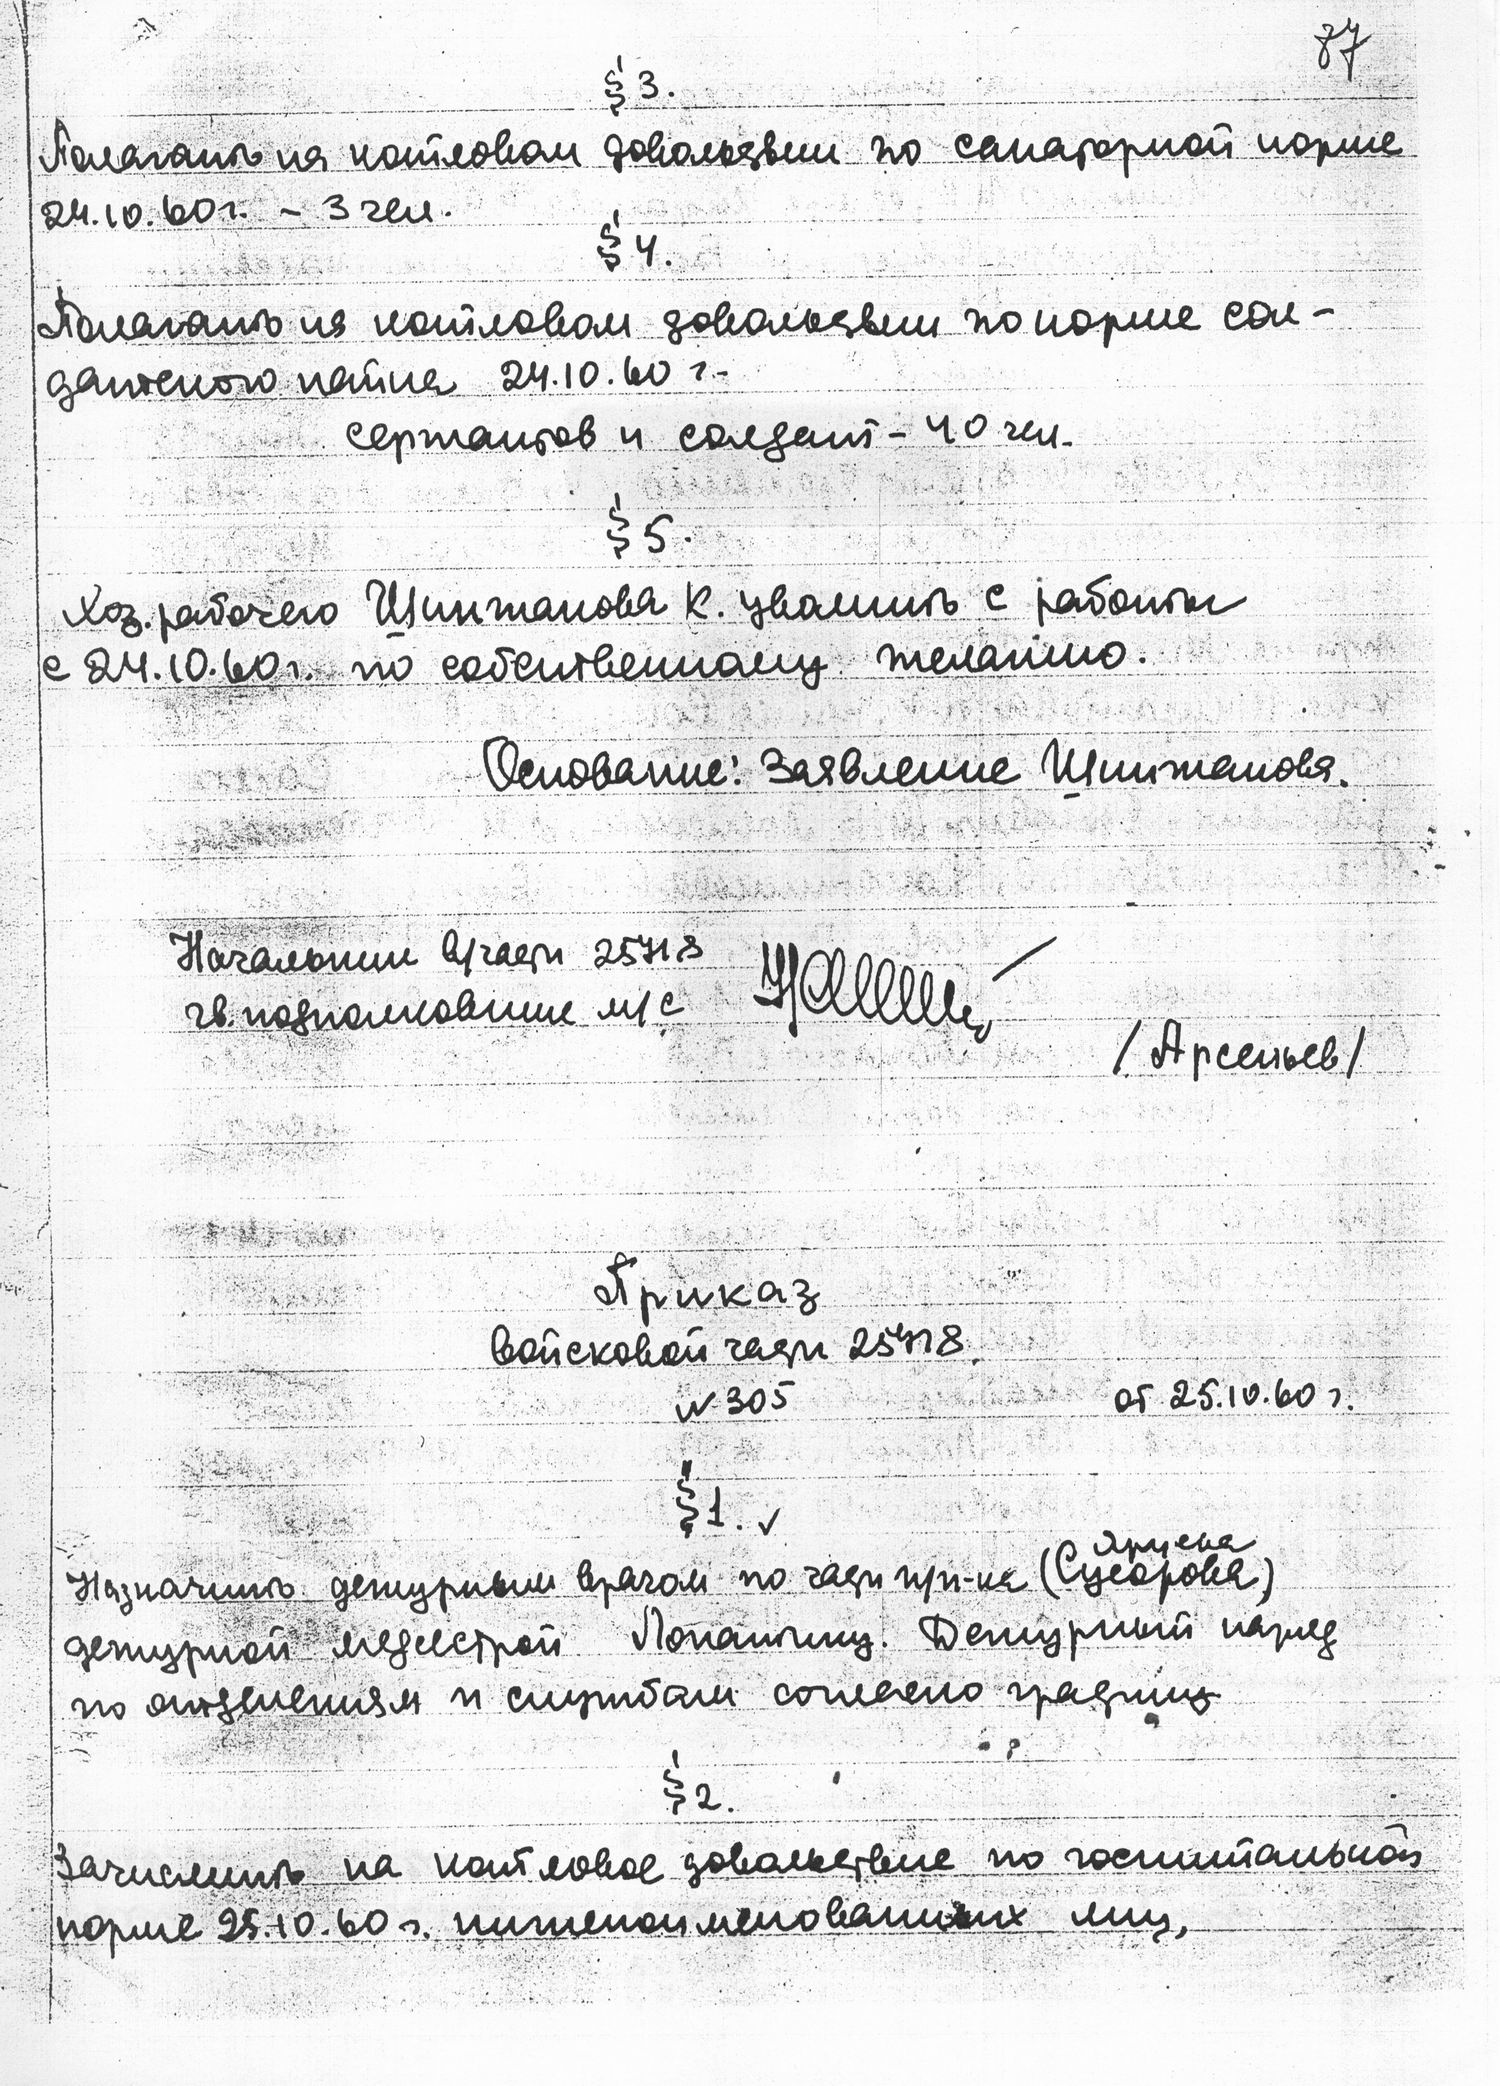 87
§ 3.
Полагать на котловом довольствии по санаторной норме
24.10.60 г. – 3 чел.
§ 4.
Полагать на котловом довольствии по норме сол-
датского пайка 24.10.60 г. –
сержантов и солдат – 40 чел.
§ 5.
Хоз. рабочего Шинжанова К. уволить с работы
с 24.10.60 г. по собственному желанию.
Основание: Заявление Шинжанова.
Начальник в/части 25718
гв. подполковник м/с
/Арсеньев/
Приказ
войсковой части 25718
№ 305 от 25.10.60 г.
§ 1.
Назначить дежурным врачом по части п/п-ка (Сусорова)
дежурной медсестрой Лопатину. Дежурный наряд
по отделениям и службам согласно графику
§ 2.
Зачислить на котловое довольствие по госпитальной
норме 25.10.60 г. нижепоименованных лиц,